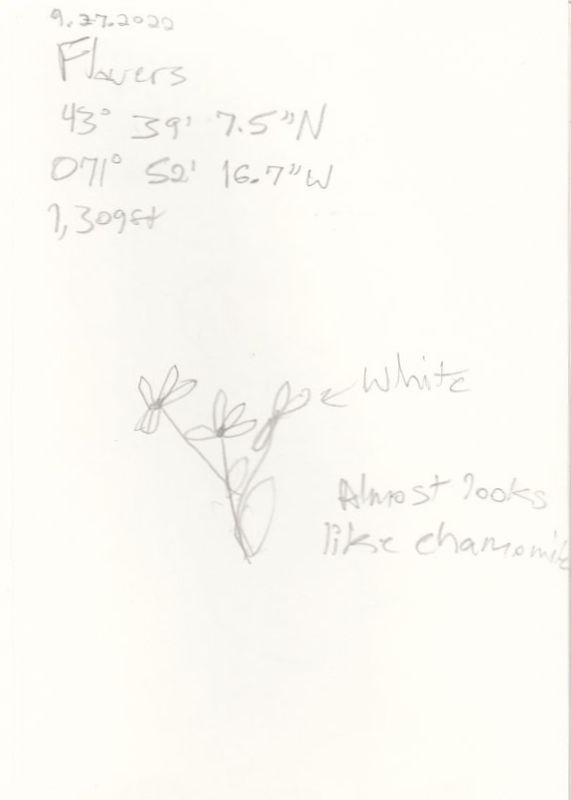 9.27.2022
Flowers
43° 39' 7.5"N
071° 52' 16.7"W
1,309ft
White
Almost looks
like chamomile